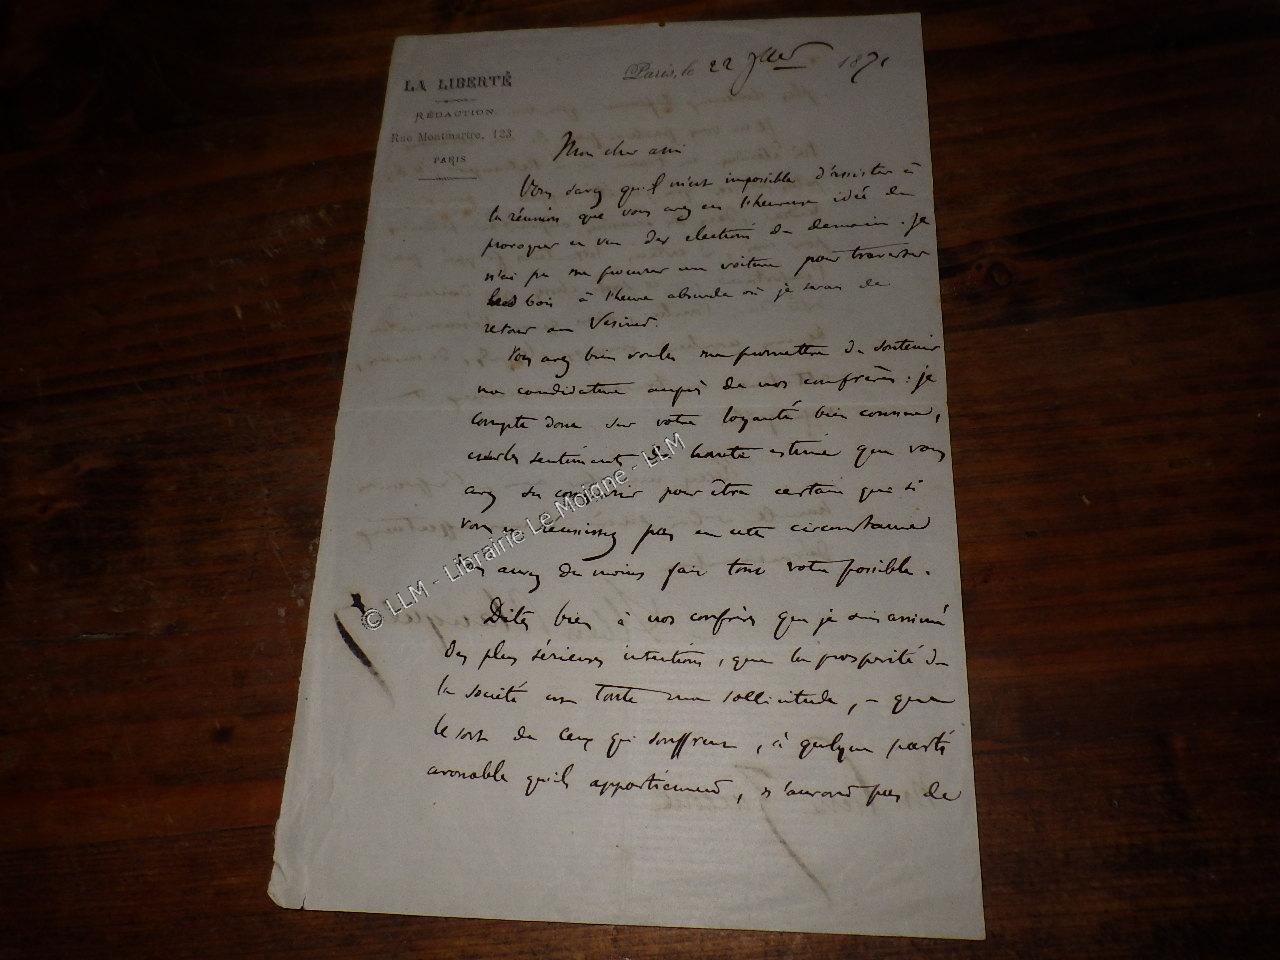 LA LIBERTÉ
RÉDACTION
Rue Montmartre, 123
PARIS
Paris, le 22 1871
Mon cher ami
Vous savez qu'il m'est impossible d'assister à
la réunion que vous avez eu l'heureuse idée de
provoquer en vue des élections de demain. Je
n'ai pu me procurer une voiture pour traverser
bois à l'heure absurde où je serais de
retour au Vésinet.
Vous avez bien voulu me promettre de soutenir
ma candidature auprès de nos confrères : je
compte donc sur votre loyauté bien connue,
sentiments de haute estime que vous
avez su pour être certain que si
vous ne réussissez pas en cette circonstance
vous aurez du moins fait tout votre possible.
Dites bien à nos confrères que je suis animé
des plus sérieuses intentions, que la prospérité de
la société a toute ma sollicitude, que
le sort de ceux qui souffrent, à quelque parti
avouable qu'ils appartiennent, n'auront pas de
© LLM - Librairie Le Moigne - LLM